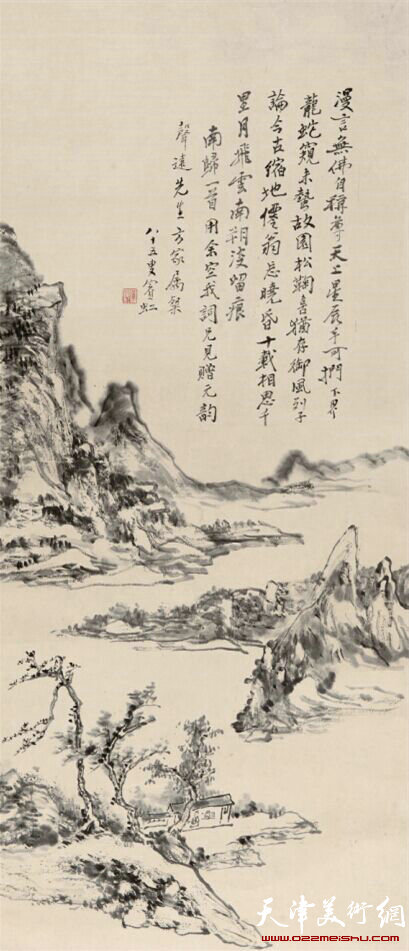 漫言無佛自稱尊天上星辰手可捫下界
龍蛇窺未蟄故園松鞠喜猶存御風列子
論今古縮地僊翁忘曉昏十載相思千
里月飛雲南朔淡留痕
南歸一首用余空我詞兄見贈元韵
聲遠先生方家屬粲
八十五叟賓虹
天津美術網
www.022meishu.com